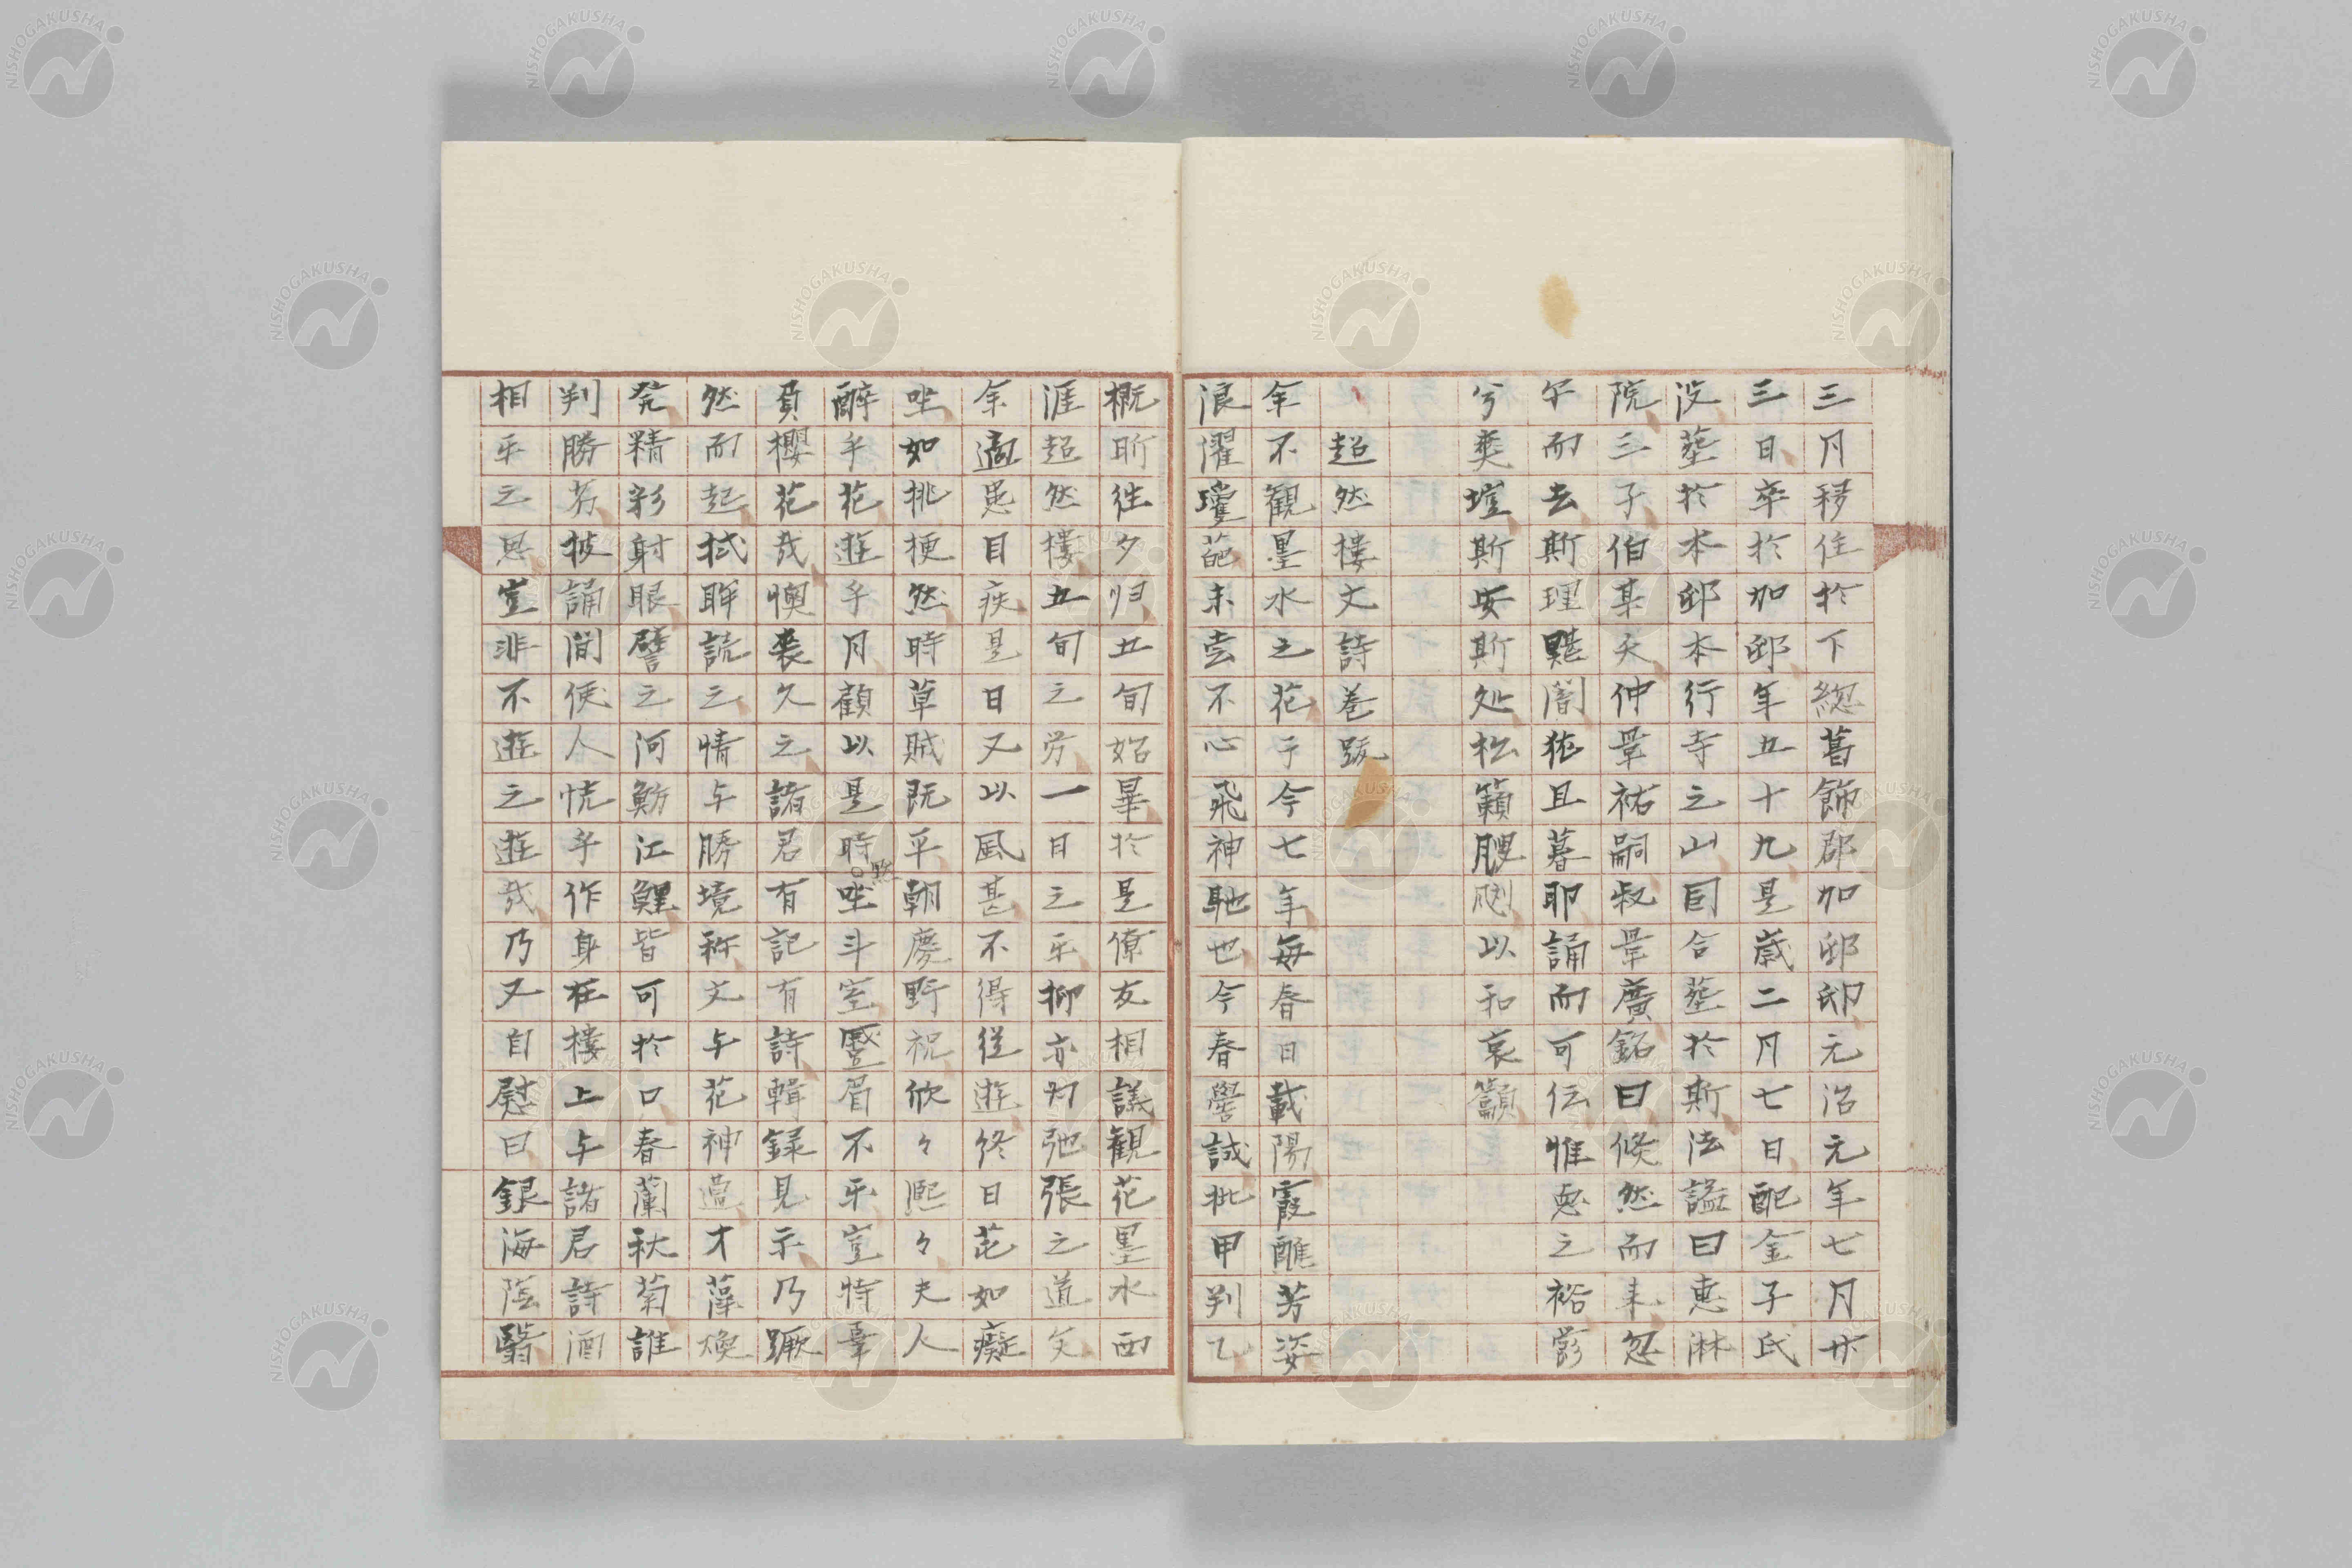 三月移住於下総葛飾郡加邨卯元治元年七月廿
三日卒於加邨年五十九是歳二月七日配金子氏
没葬於本邨本行寺之山目合葬於斯法諡曰恵淋
院三子伯某夭仲肇祐嗣叔肇廣銘曰倏然而来忽
乎而去斯理闇猛且暮耶誦而可伝惟之裕
兮奕斯安斯処松籟颼以和哀籲
超然楼文詩巻跋
余不観墨水之花于今七年毎春日載陽霞醮芳姿
浪濯瓊葩未嘗不心飛神馳也今春黌試批甲判乙
概昕往夕帰五旬始畢於是僚友相議観花墨水西
涯超然楼五旬之労一日之楽抑亦為弛張之道矣
余適患目疾是日又以風甚不得従遊終日茫如癡
坐如挑梗然時草賊既平朝慶野祝欣々熙々夫人
酔乎花遊乎月顧以是時坐斗室蹙眉不楽豈特辜
負櫻花哉懊喪久之諸君有記有詩輯録見示乃蹶
然而起拭眸読之情与勝境称文与花神遭才藻煥
発精彩射眼譬之河魴江鯉皆可於口春蘭秋菊誰
判勝芬披誦間使人恍乎作身在楼上与諸君詩酒
相楽之思豈非不遊之遊哉乃又自慰曰銀海蔭翳
黙
NISHOGAKUSHA